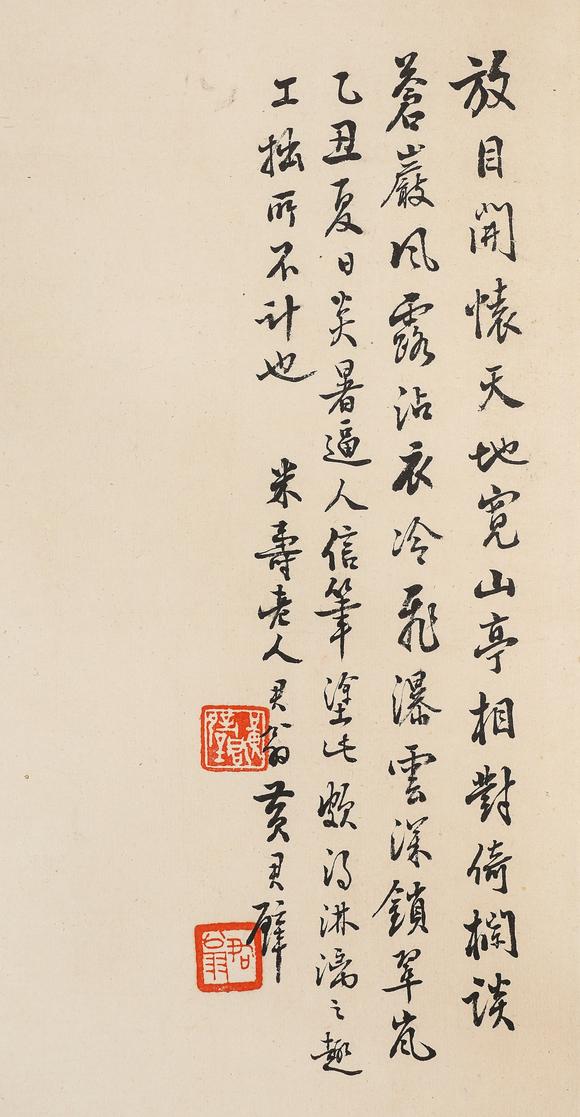 放目開懷天地寬山亭相對倚欄談
蒼巖風露沾衣冷飛瀑雲深鎖翠嵐
乙丑夏日炎暑逼人信筆塗此頗得淋漓之趣
工拙所不計也 米壽老人君翁黃君璧
君翁